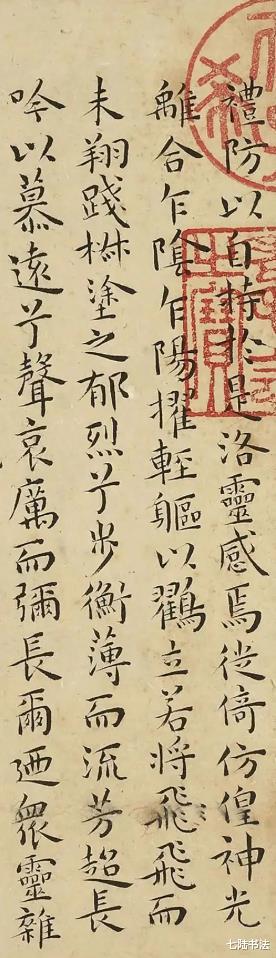 禮防以自持於是洛靈感焉徙倚仿偟神光
離合乍陰乍陽擢輕軀以鸖立若將飛飛而
未翔踐椒塗之郁烈兮步衡薄而流芳超長
吟以慕遠兮聲哀厲而彌長爾迺衆靈雜
之寶
七陆书法